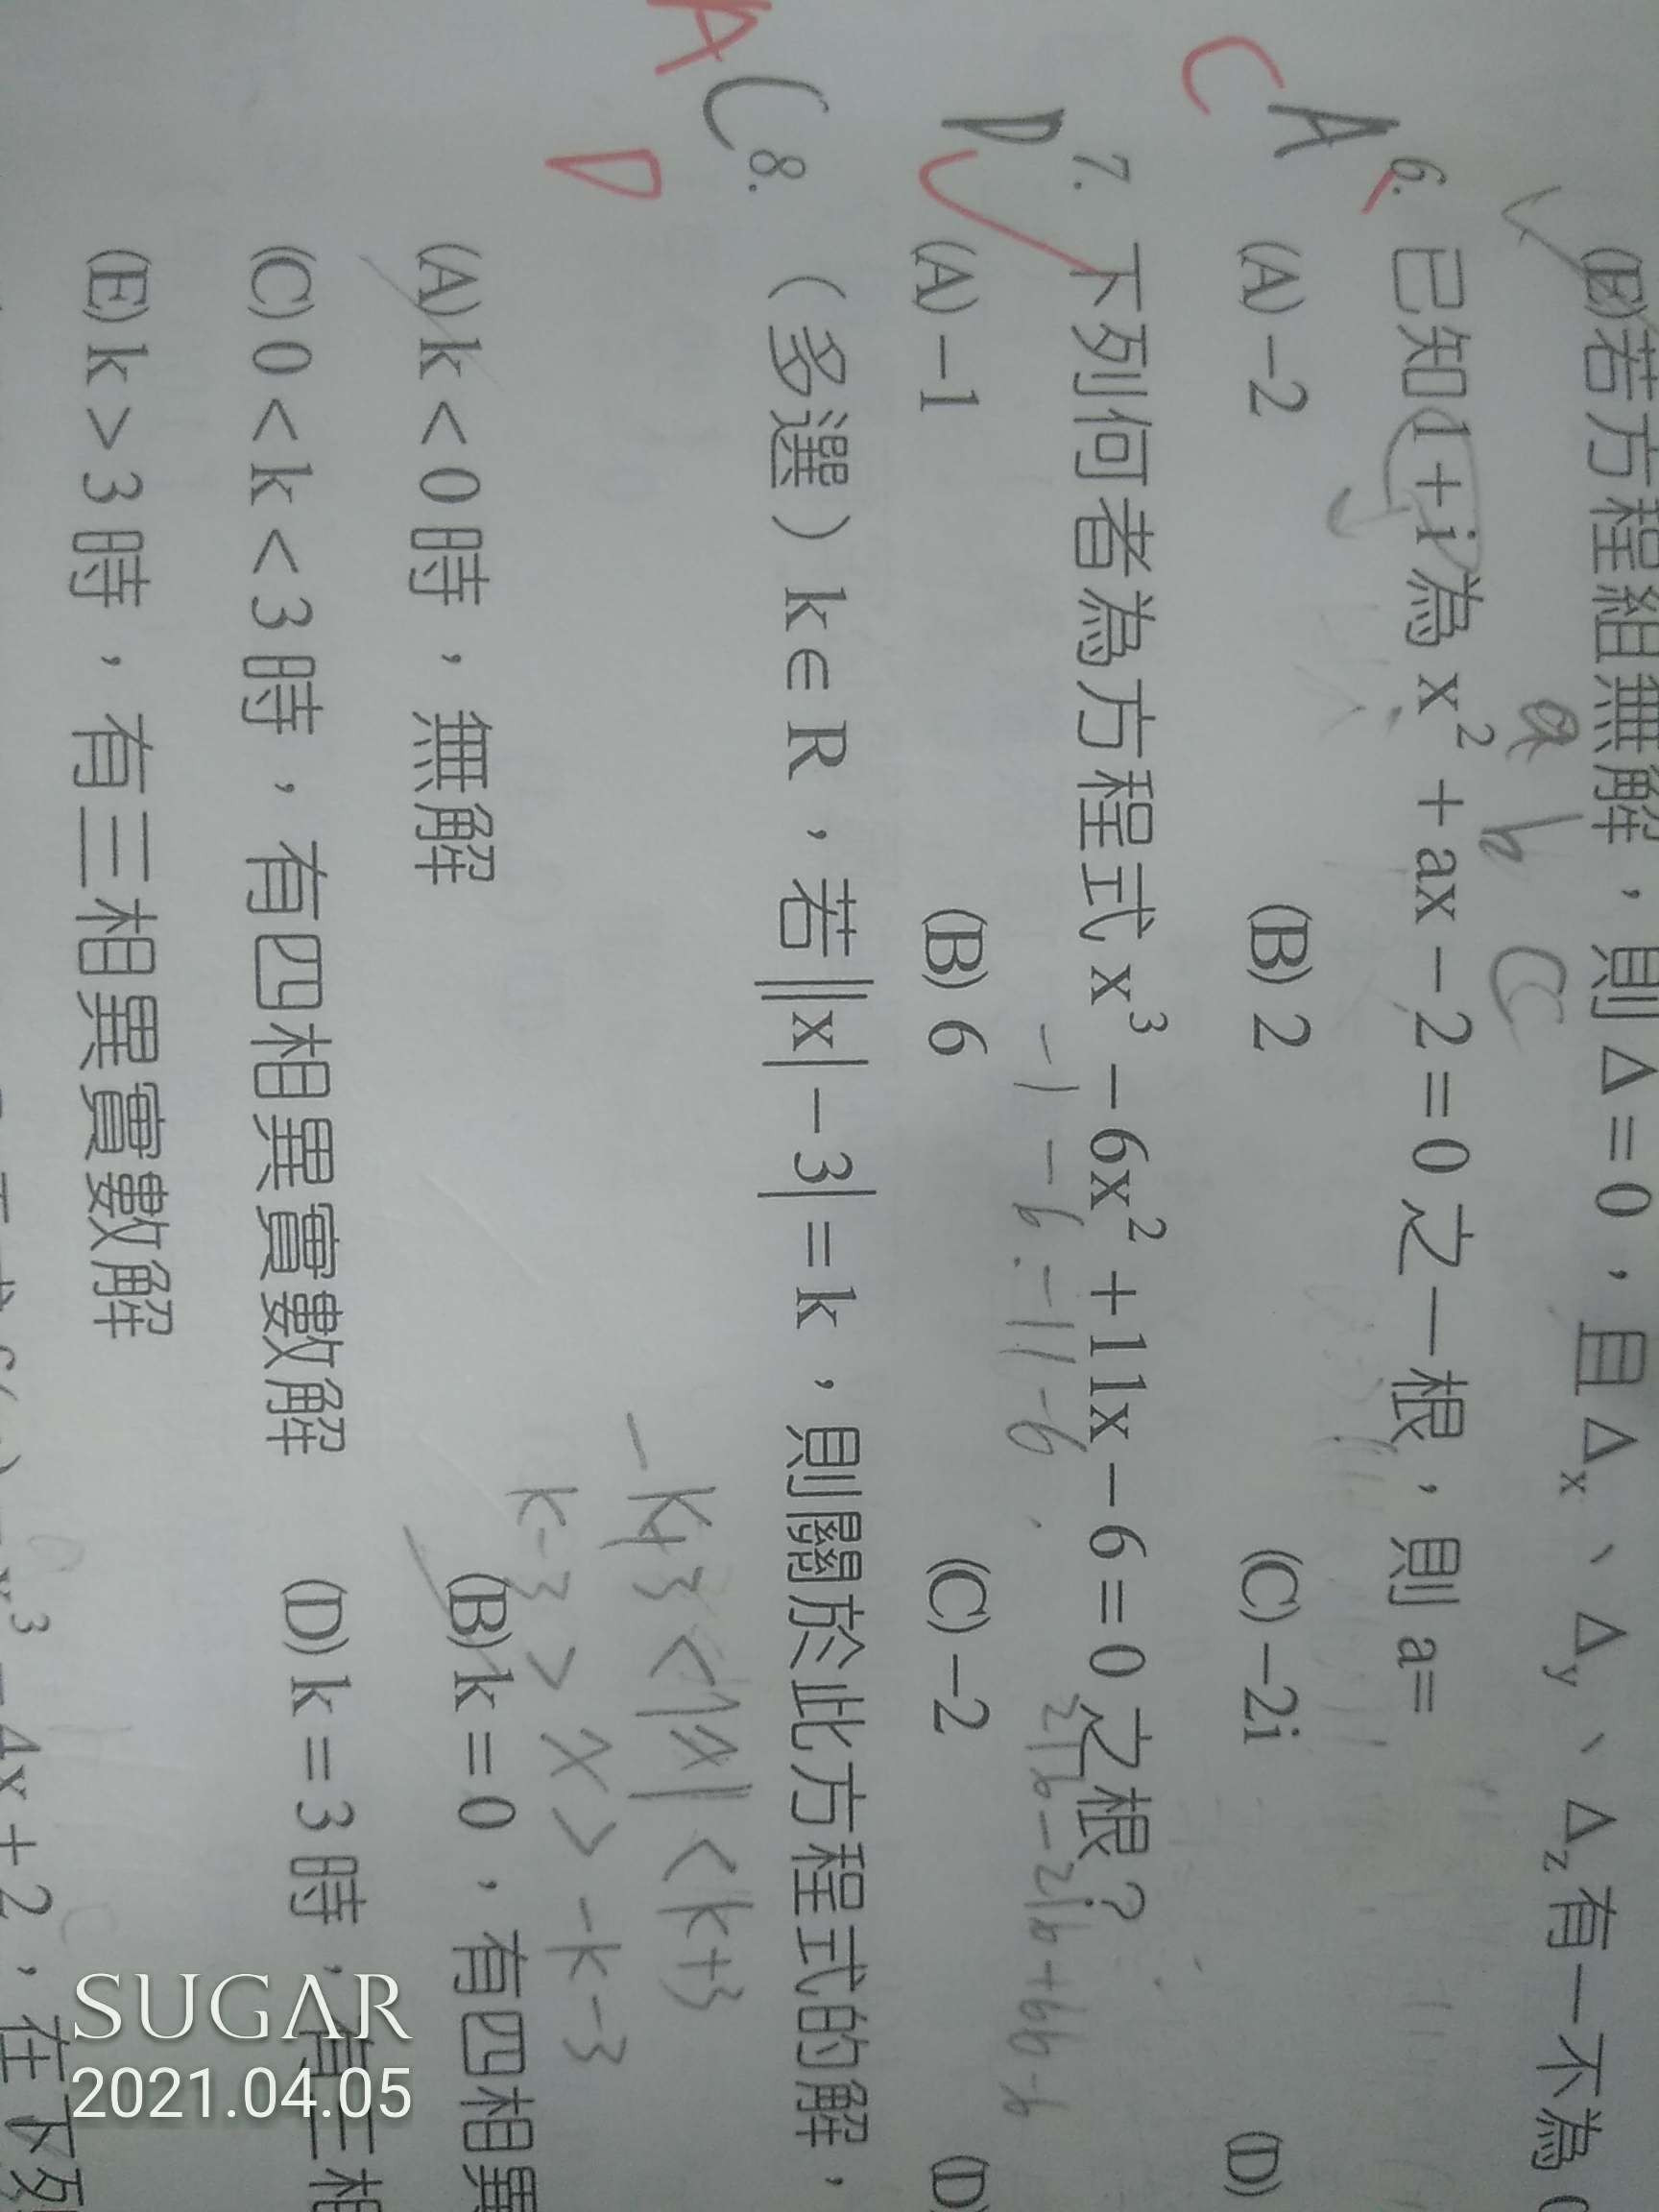 (E)若方程組無解，則Δ=0，且Δx、Δy、Δz有一不為0
a b C
C A 6. 已知1+i為x²+ax-2=0之一根，則a=
(A)-2 (B)2 (C)-2i (D)
D 7. 下列何者為方程式x³-6x²+11x-6=0之根？
-1 -6 -11 -6
(A)-1 (B)6 (C)-2 (D)
A C 8. （多選）k∈R，若||x|-3|=k，則關於此方程式的解，
D
-k+3<|x|<k+3
k-3>x>-k-3
(A)k<0時，無解 (B)k=0，有四相異
(C)0<k<3時，有四相異實數解 (D)k=3時，有三相
(E)k>3時，有三相異實數解
x³-4x+2，在下列
SUGAR
2021.04.05